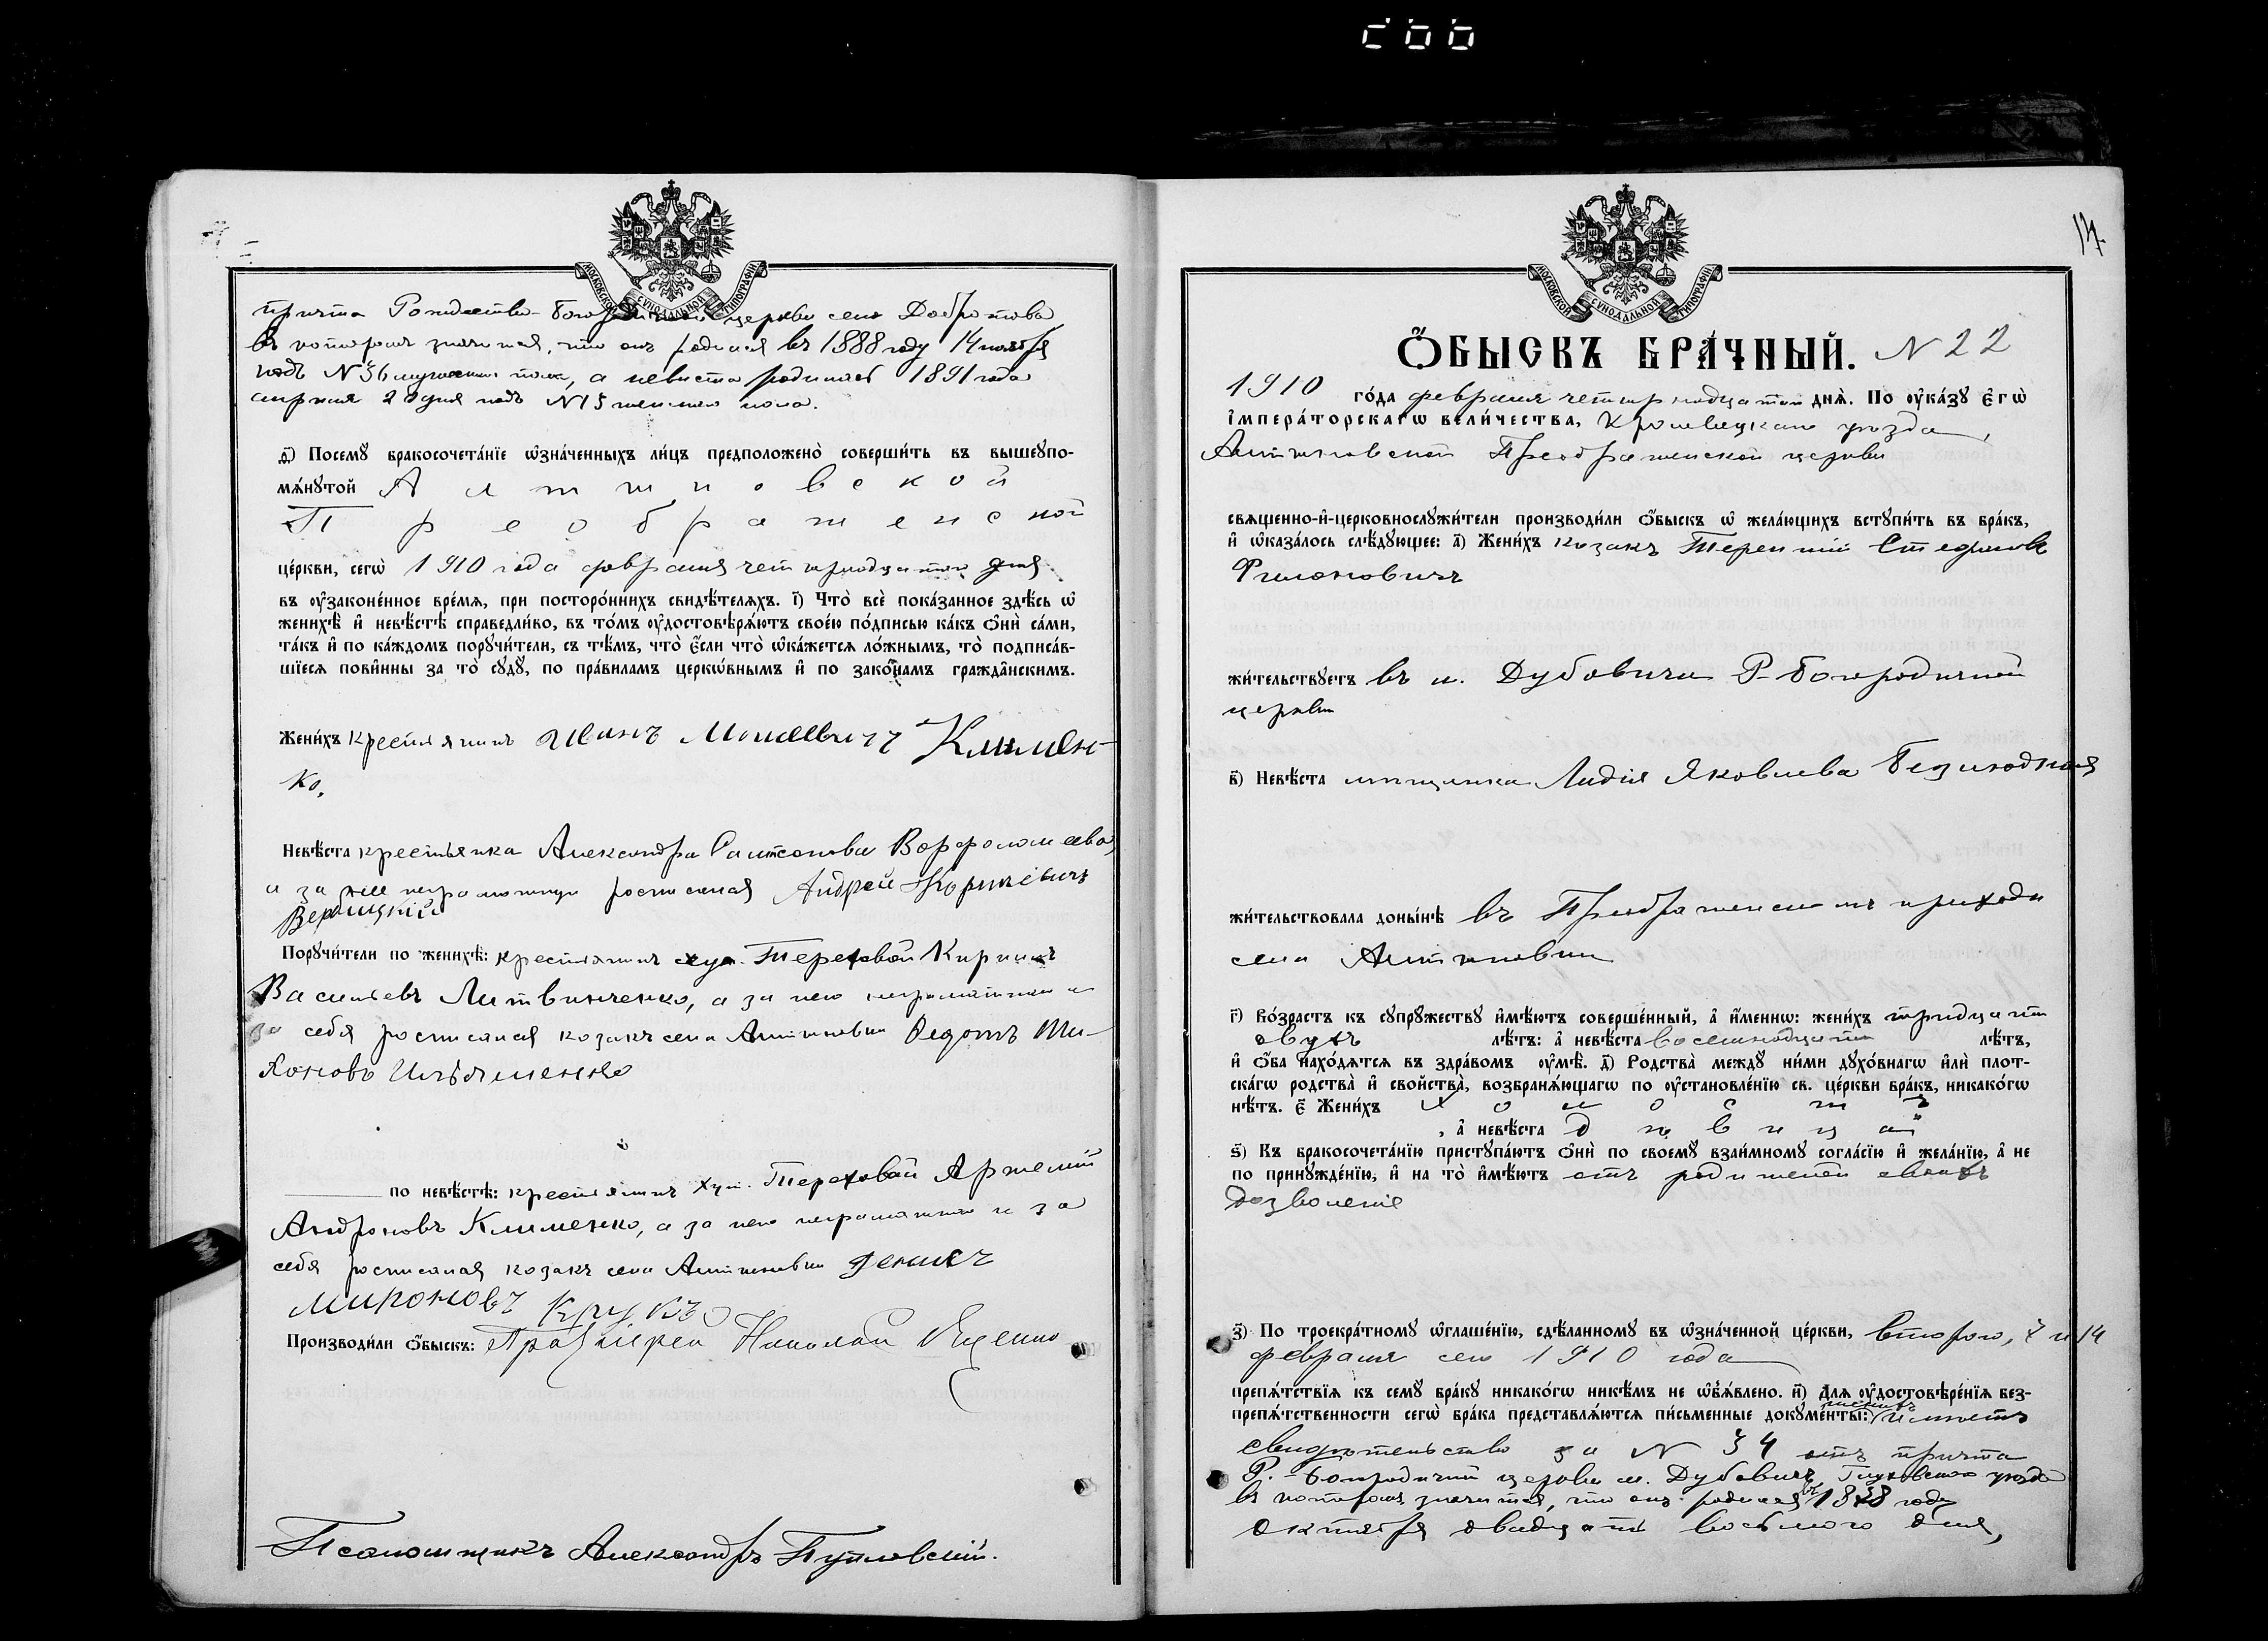 причта Рождество-Богородичной церкви села Добротова
въ которомъ значится, что онъ родился въ 1888 году 14 ноября
подъ N 36 мужескаго пола, а невеста родилась 1891 года
апреля 20 дня подъ N 15 женскаго пола.
ѳ҃) Посемꙋ бракосочета́нїе ѡ҆зна́ченныхъ ли́цъ предположено̀ соверши́ть въ вышеꙋпо-
мѧ́нꙋтой Алтиновской
Преображенской
це́ркви, сегѡ̀ 1910 года февраля четырнадцатаго дня
въ ᲂу҆законе́нное вре́мѧ, при посторо́ннихъ свидѣ́телѧхъ. і҃) Что̀ всѐ пока́занное здѣ́сь ѡ҆
женихѣ̀ и҆ невѣ́стѣ справедли́во, въ то́мъ ᲂу҆достовѣрѧ́ютъ свое́ю по́дписью ка́къ ѻ҆нѝ са́ми,
та́къ и҆ по ка́ждомъ порꙋчи́тели, съ тѣ́мъ, что̀ є҆́сли что̀ ѡ҆ка́жетсѧ ло́жнымъ, то̀ подписа́в-
шїесѧ пови́нны за то̀ сꙋдꙋ̀, по пра́виламъ церко́внымъ и҆ по зако́намъ гражда́нскимъ.
Жени́хъ крестьянинъ Иванъ Моисеевичъ Климен-
ко.
Невѣ́ста крестьянка Александра Сампсонова Ворфоломеева,
и за нее неграмотную росписался Андрей
Вербицкій
Порꙋчи́тели по женихѣ̀: крестьянинъ хут. Тереховой Кирилъ
Васильевъ Литвинченко, а за него неграмотнаго и
за себя росписался козакъ села Алтиновки Федотъ Ти-
хоновъ Ильяшенко
по невѣ́стѣ: крестьянинъ хут. Тереховой Артемій
Андроновъ Клименко, а за него неграмотнаго и за
себя росписался козакъ села Алтиновки Денисъ
Мироновъ Крукъ
Производи́ли ѻ҆́быскъ: Протоіерей Николай Ященко
Псаломщикъ Александръ Пушовскій.
МОСКОВСКОЙ СѴНОДАЛЬНОЙ ТИПОГРАФІИ
МОСКОВСКОЙ СѴНОДАЛЬНОЙ ТИПОГРАФІИ
Ѻ҆БЫСКЪ БРА́ЧНЫЙ. N 22
1910 го́да февраля четырнадцатаго днѧ̀. По ᲂу҆ка́зꙋ є҆гѡ̀
і҆мпера́торскагѡ вели́чества, Кролевецкаго уезда,
Алтиновской Преображенской церкви
свѧще́нно-и҆-церковнослꙋжи́тели производи́ли ѻ҆́быскъ ѡ҆ жела́ющихъ встꙋпи́ть въ бра́къ,
и҆ ѡ҆каза́лось слѣ́дꙋющее: а҃) Жени́хъ козакъ Терентій Стефановъ
Филоновичъ
жи́тельствꙋетъ въ м. Дубовичи Р-Богородичной
церкви
в҃) Невѣ́ста мещанка Лидія Яковлева Безлюдная
жи́тельствовала доны́нѣ въ Преображенскомъ приходе
села Алтиновки
г҃) Во́зрастъ къ сꙋпрꙋ́жествꙋ и҆мѣ́ютъ соверше́нный, а҆ и҆́меннѡ: жени́хъ тридцати
двухъ лѣ́тъ: а҆ невѣ́ста восемнадцати лѣ́тъ,
и҆ ѻ҆́ба нахо́дѧтсѧ въ здра́вомъ ᲂу҆мѣ̀. д҃) Родства̀ междꙋ ни́ми дꙋхо́внагѡ и҆лѝ плот-
ска́гѡ родства̀ и҆ свойства̀, возбранѧ́ющагѡ по ᲂу҆становле́нїю св. це́ркви бра́къ, никако́гѡ
нѣ́тъ. є҃) Жени́хъ холостъ
, а҆ невѣ́ста девица
ѕ҃) Къ бракосочета́нїю пристꙋпа́ютъ ѻ҆нѝ по своемꙋ̀ взаи́мномꙋ согла́сїю и҆ жела́нїю, а҆ не
по принꙋжде́нїю, и҆ на то̀ и҆мѣ́ютъ отъ родителей своихъ
дозволеніе
з҃) По троекра́тномꙋ ѡ҆глаше́нїю, сдѣ́ланномꙋ въ ѡ҆зна́ченной це́ркви, второго, 7 и 14
февраля сего 1910 года
препѧ́тствїѧ къ семꙋ̀ бра́кꙋ никако́гѡ никѣ́мъ не ѡ҆б̾ѧ́влено. и҃) Длѧ ᲂу҆достовѣре́нїѧ без-
препѧ́тственности сегѡ̀ бра́ка представлѧ́ютсѧ пи́сьменные докꙋме́нты: женихъ имеетъ
свидетельство за N 34 отъ причта
Р.-Богородичной церкви м. Дубовичъ, Глуховского уезда
въ которомъ значится, что онъ родился въ 1878 году
октября двадцать восьмого дня,